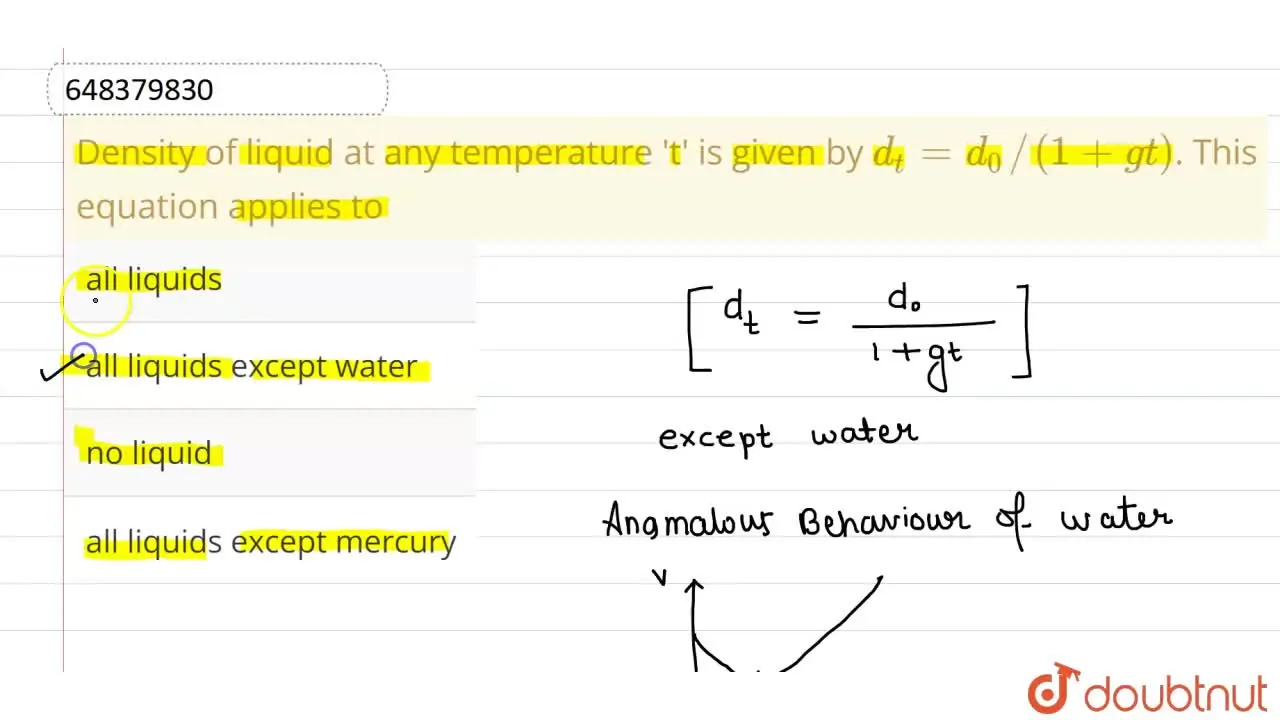 648379830
Density of liquid at any temperature 't' is given by d_t = d_0/(1 + gt). This
equation applies to
all liquids
all liquids except water
no liquid
all liquids except mercury
[ d_t = d_0 / (1 + gt) ]
except water
Anamalous Behaviour of water
V
doubtnut